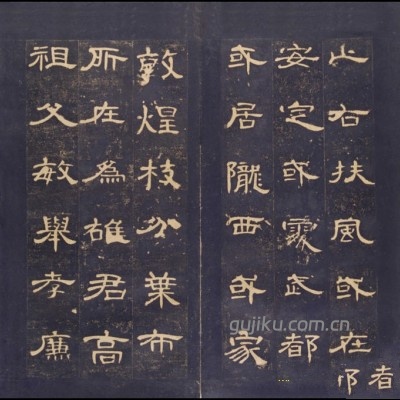 止右扶風或在
安定或處武都
或居隴西或家
敦煌枝分葉布
所在為雄君高
祖父敏舉孝廉
者
gujiku.com.cn